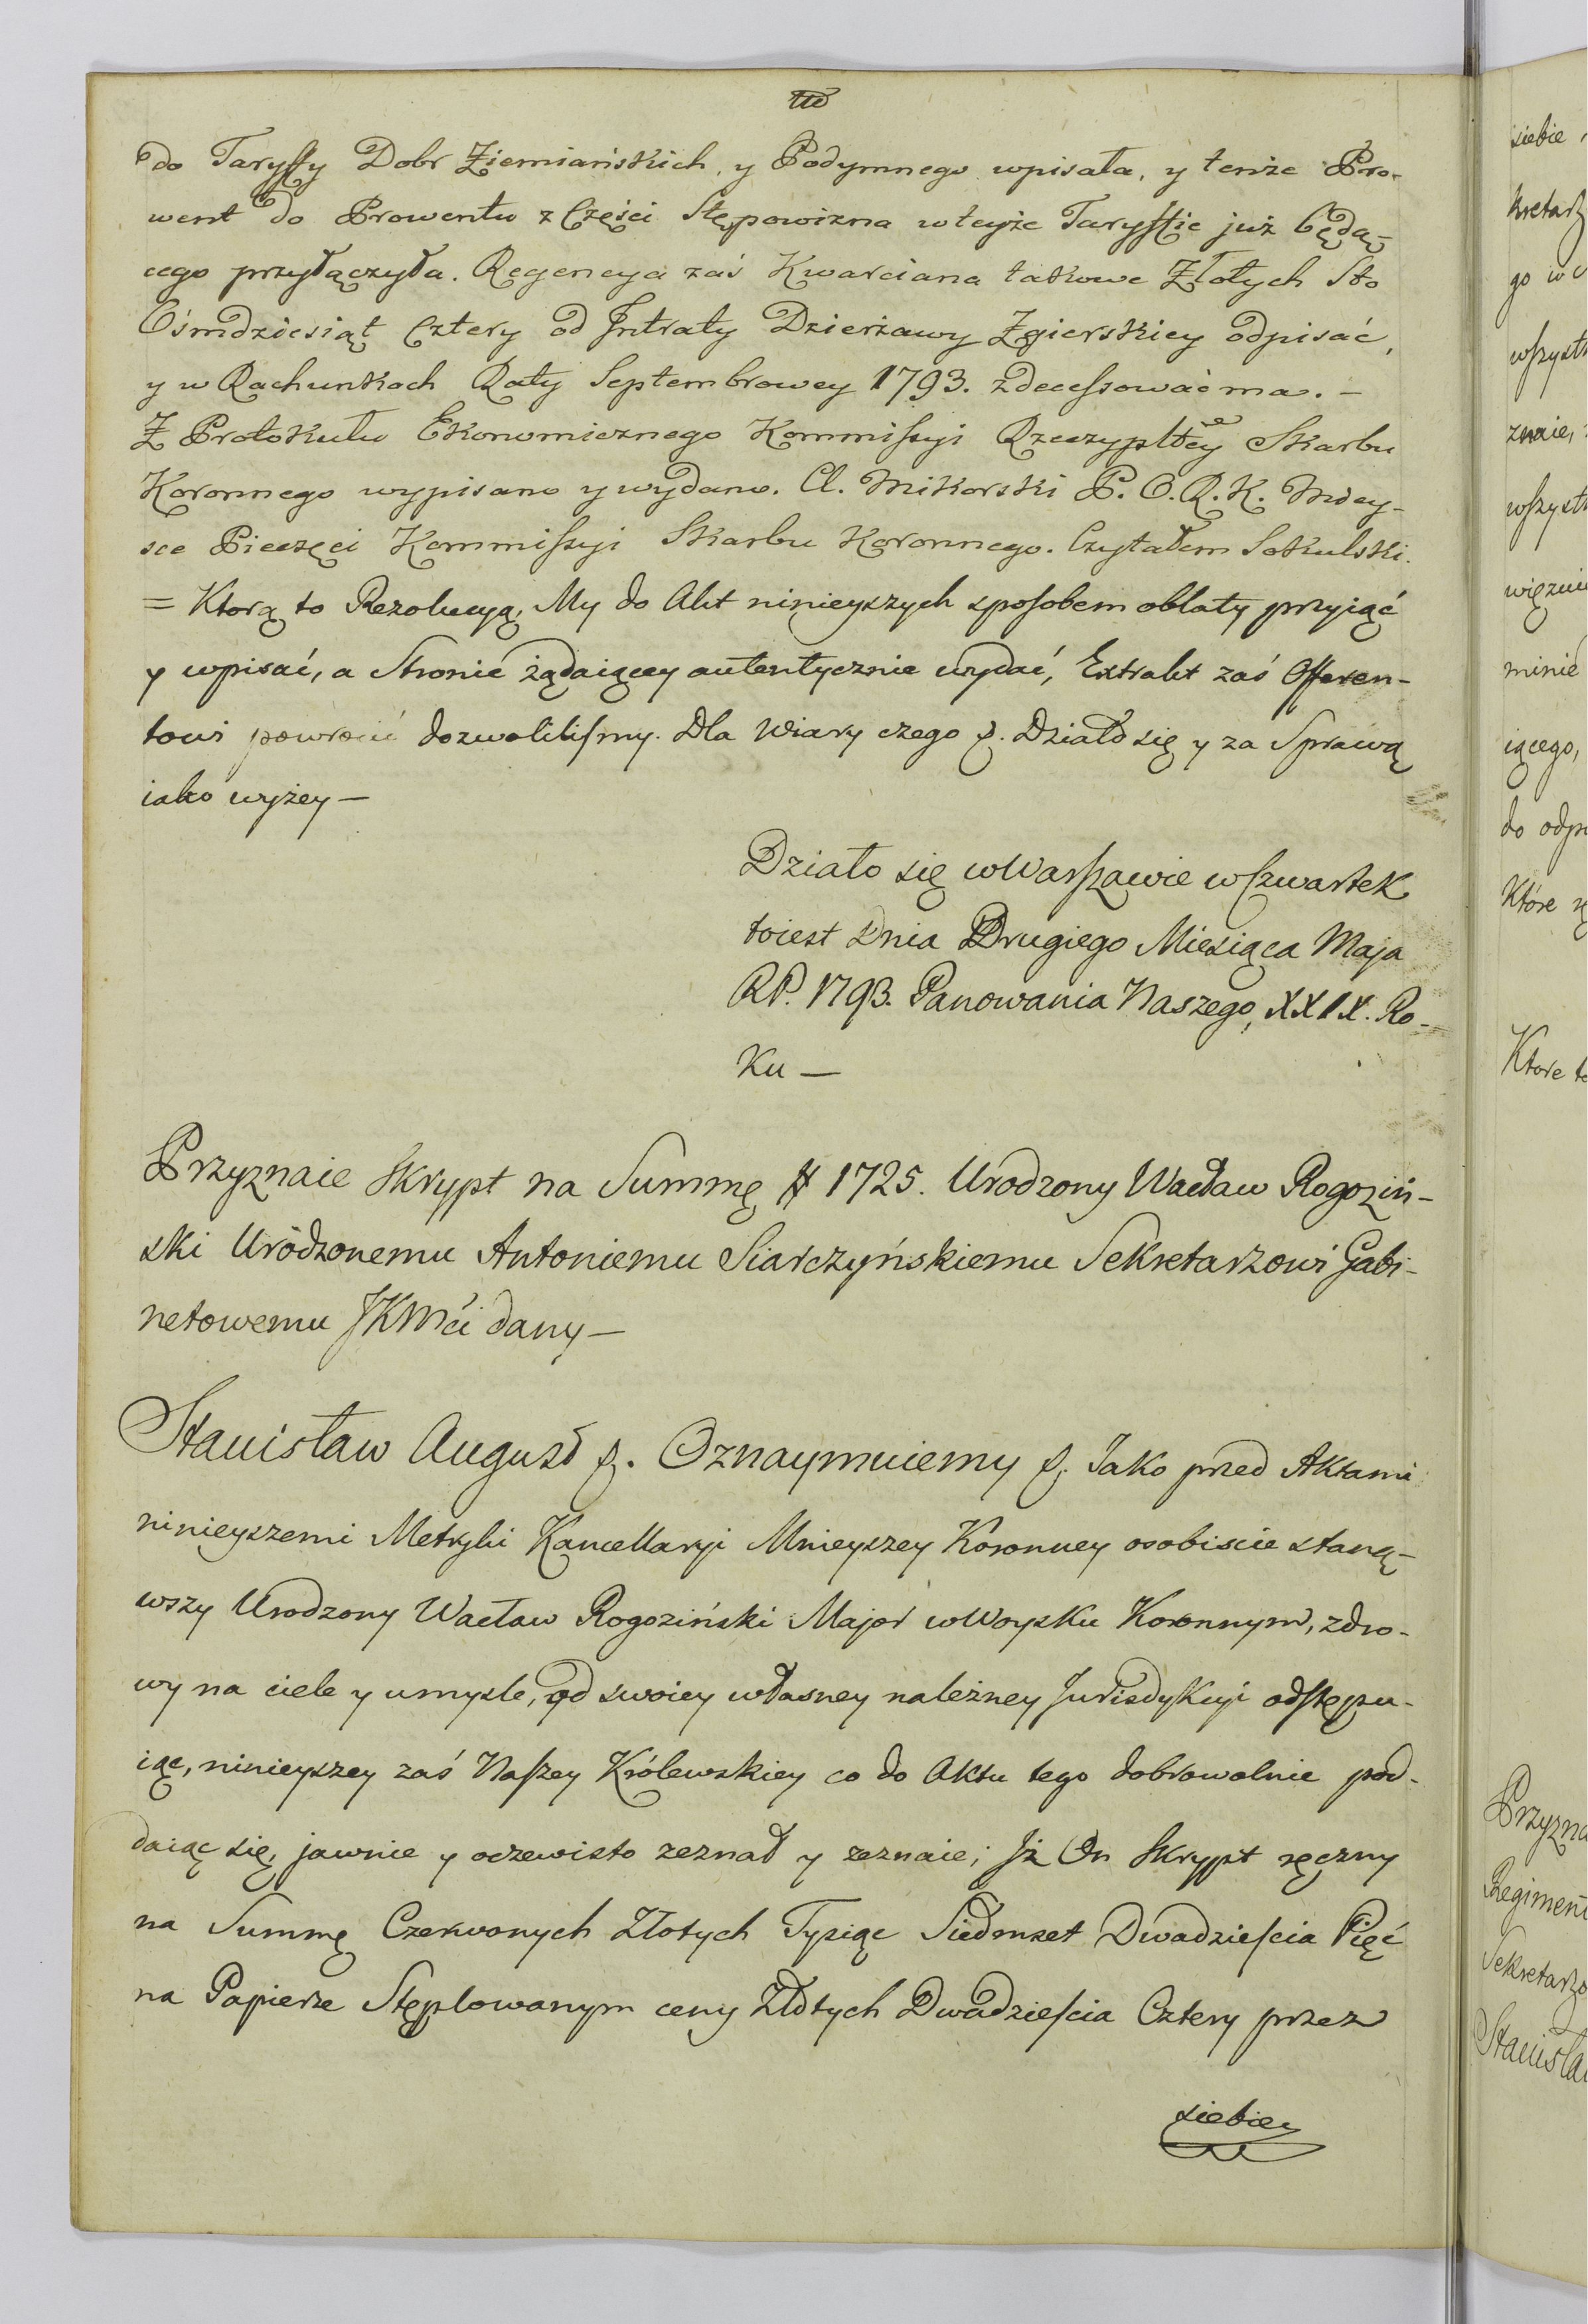 do Taryffy Dobr Ziemiańskich, y Podymnego wpisała, y tenże Pro-
went do Prowentu z Części Stępowizna w teyże Taryffie już będą-
cego przyłączyła. Regencya zaś Kwarciana takowe Złotych Sto
Ośmdziesiąt Cztery od Jntraty Dzierżawy Zgierskiey odpisać,
y w Rachunkach Raty Septembrowey 1793. zdecessować ma. -
Z Protokułu Ekonomicznego Kommissyi Rzeczypltey Skarbu
Koronnego wypisano y wydano. Cl. Mikorski P. O. R. K. Miey-
sce Pieczęci Kommissyi Skarbu Koronnego. Czytałem Sokulski.
= Ktorą to Rezolucyą, My do Akt ninieyszych sposobem oblaty przyiąć
y wpisać, a Stronie żądaiącey autentycznie wydać, Extrakt zaś Offeren-
towi powrócić dozwoliliśmy. Dla Wiary czego &. Działo się y za Sprawą
iako wyżey —
Działo się w Warszawie w Czwartek
toiest Dnia Drugiego Miesiąca Maja
RP. 1793. Panowania Naszego, XXIX. Ro-
Ku —
Przyznaie Skrypt na Summę # 1725. Urodzony Wacław Rogoziń-
ski Urodzonemu Antoniemu Siarczyńskiemu Sekretarzowi Gabi-
netowemu JKMći dany —
Stanisław August &. Oznaymuiemy &. Jako przed Aktami
ninieyszemi Metryki Kancellaryi Mnieyszey Koronney osobiscie staną-
wszy Urodzony Wacław Rogoziński Major w Woysku Koronnym, zdro-
wy na ciele y umysle, od swoiey własney należney Jurisdykcyi odstępu-
iąc, ninieyszey zaś Naszey Królewskiey co do Aktu tego dobrowolnie pod-
daiąc się, jawnie y oczewisto zeznał y zeznaie; Jż On Skrypt ręczny
na Summę Czerwonych Złotych Tysiąc Siedmset Dwadzieścia Pięć
na Papierze Stęplowanym ceny Złotych Dwadzieścia Cztery przez
siebie,
siebie
kretarz
go w
wszyst
znaie,
wszyst
więzni
minie
iącego,
do odpi
Które
Ktore to
Przyzna
Regimen
Sekretarzo
Stanisła